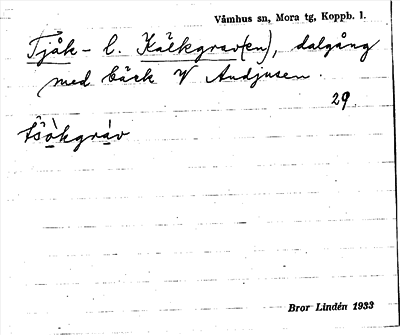 Våmhus sn, Mora tg, Koppb. l.
Tjåk- l. Kälkgrav(en), dalgång
med bäck V Andjusen.
29.
tšò̱kgrà̱v
Bror Lindén 1933